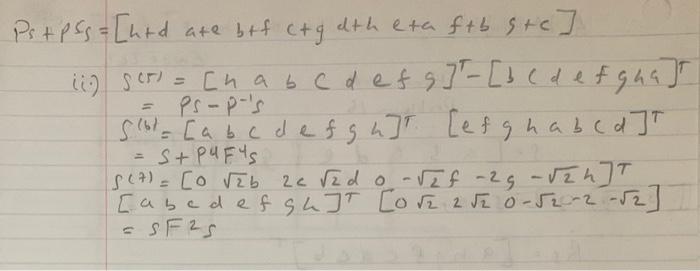 Ps + p⁵s = [h+d a+e b+f c+g d+h e+a f+b g+c]
ii.) s⁽⁵⁾ = [h a b c d e f g]ᵀ - [b c d e f g h a]ᵀ
= Ps - P⁻¹s
s⁽⁶⁾ = [a b c d e f g h]ᵀ [e f g h a b c d]ᵀ
= s + P⁴F⁴s
s⁽⁷⁾ = [0 √2b 2c √2d 0 -√2f -2g -√2h]ᵀ
[a b c d e f g h]ᵀ [0 √2 2 √2 0 -√2 -2 -√2]
= SF²s